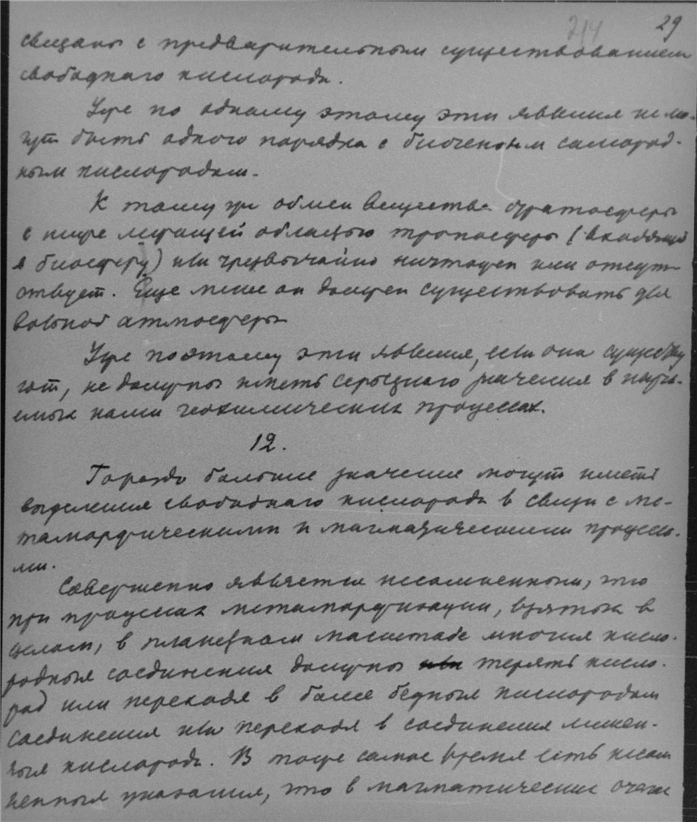 214 29
связаны с предварительным существованием
свободнаго кислорода.
Уже по одному этому эти явления не мо-
гут быть одного порядка с биогенным самород-
ным кислородом.
К тому же обмен вещества стратосферы
с ниже лежащей областью тропосферы (входящей
в биосферу) или чрезвычайно ничтожен или отсут-
ствует. Еще менее он должен существовать для
вольной атмосферы
Уже поэтому эти явления, если они существу
ют, не должны иметь серьезнаго значения в изуча-
емых нами геохимических процессах.
12.
Гораздо большее значение могут иметь
выделения свободнаго кислорода в связи с ме-
таморфическими и магматическими процесса-
ми.
Совершенно является несомненным, что
при процессах метаморфизации, взятых в
целом, в планетном масштабе многия кисло-
родныя соединения должны терять кисло-
род или переходя в более бедныя кислородом
соединения или переходя в соединения лишен-
ныя кислорода. В тоже самое время есть несом
ненныя указания, что в магматические очаги